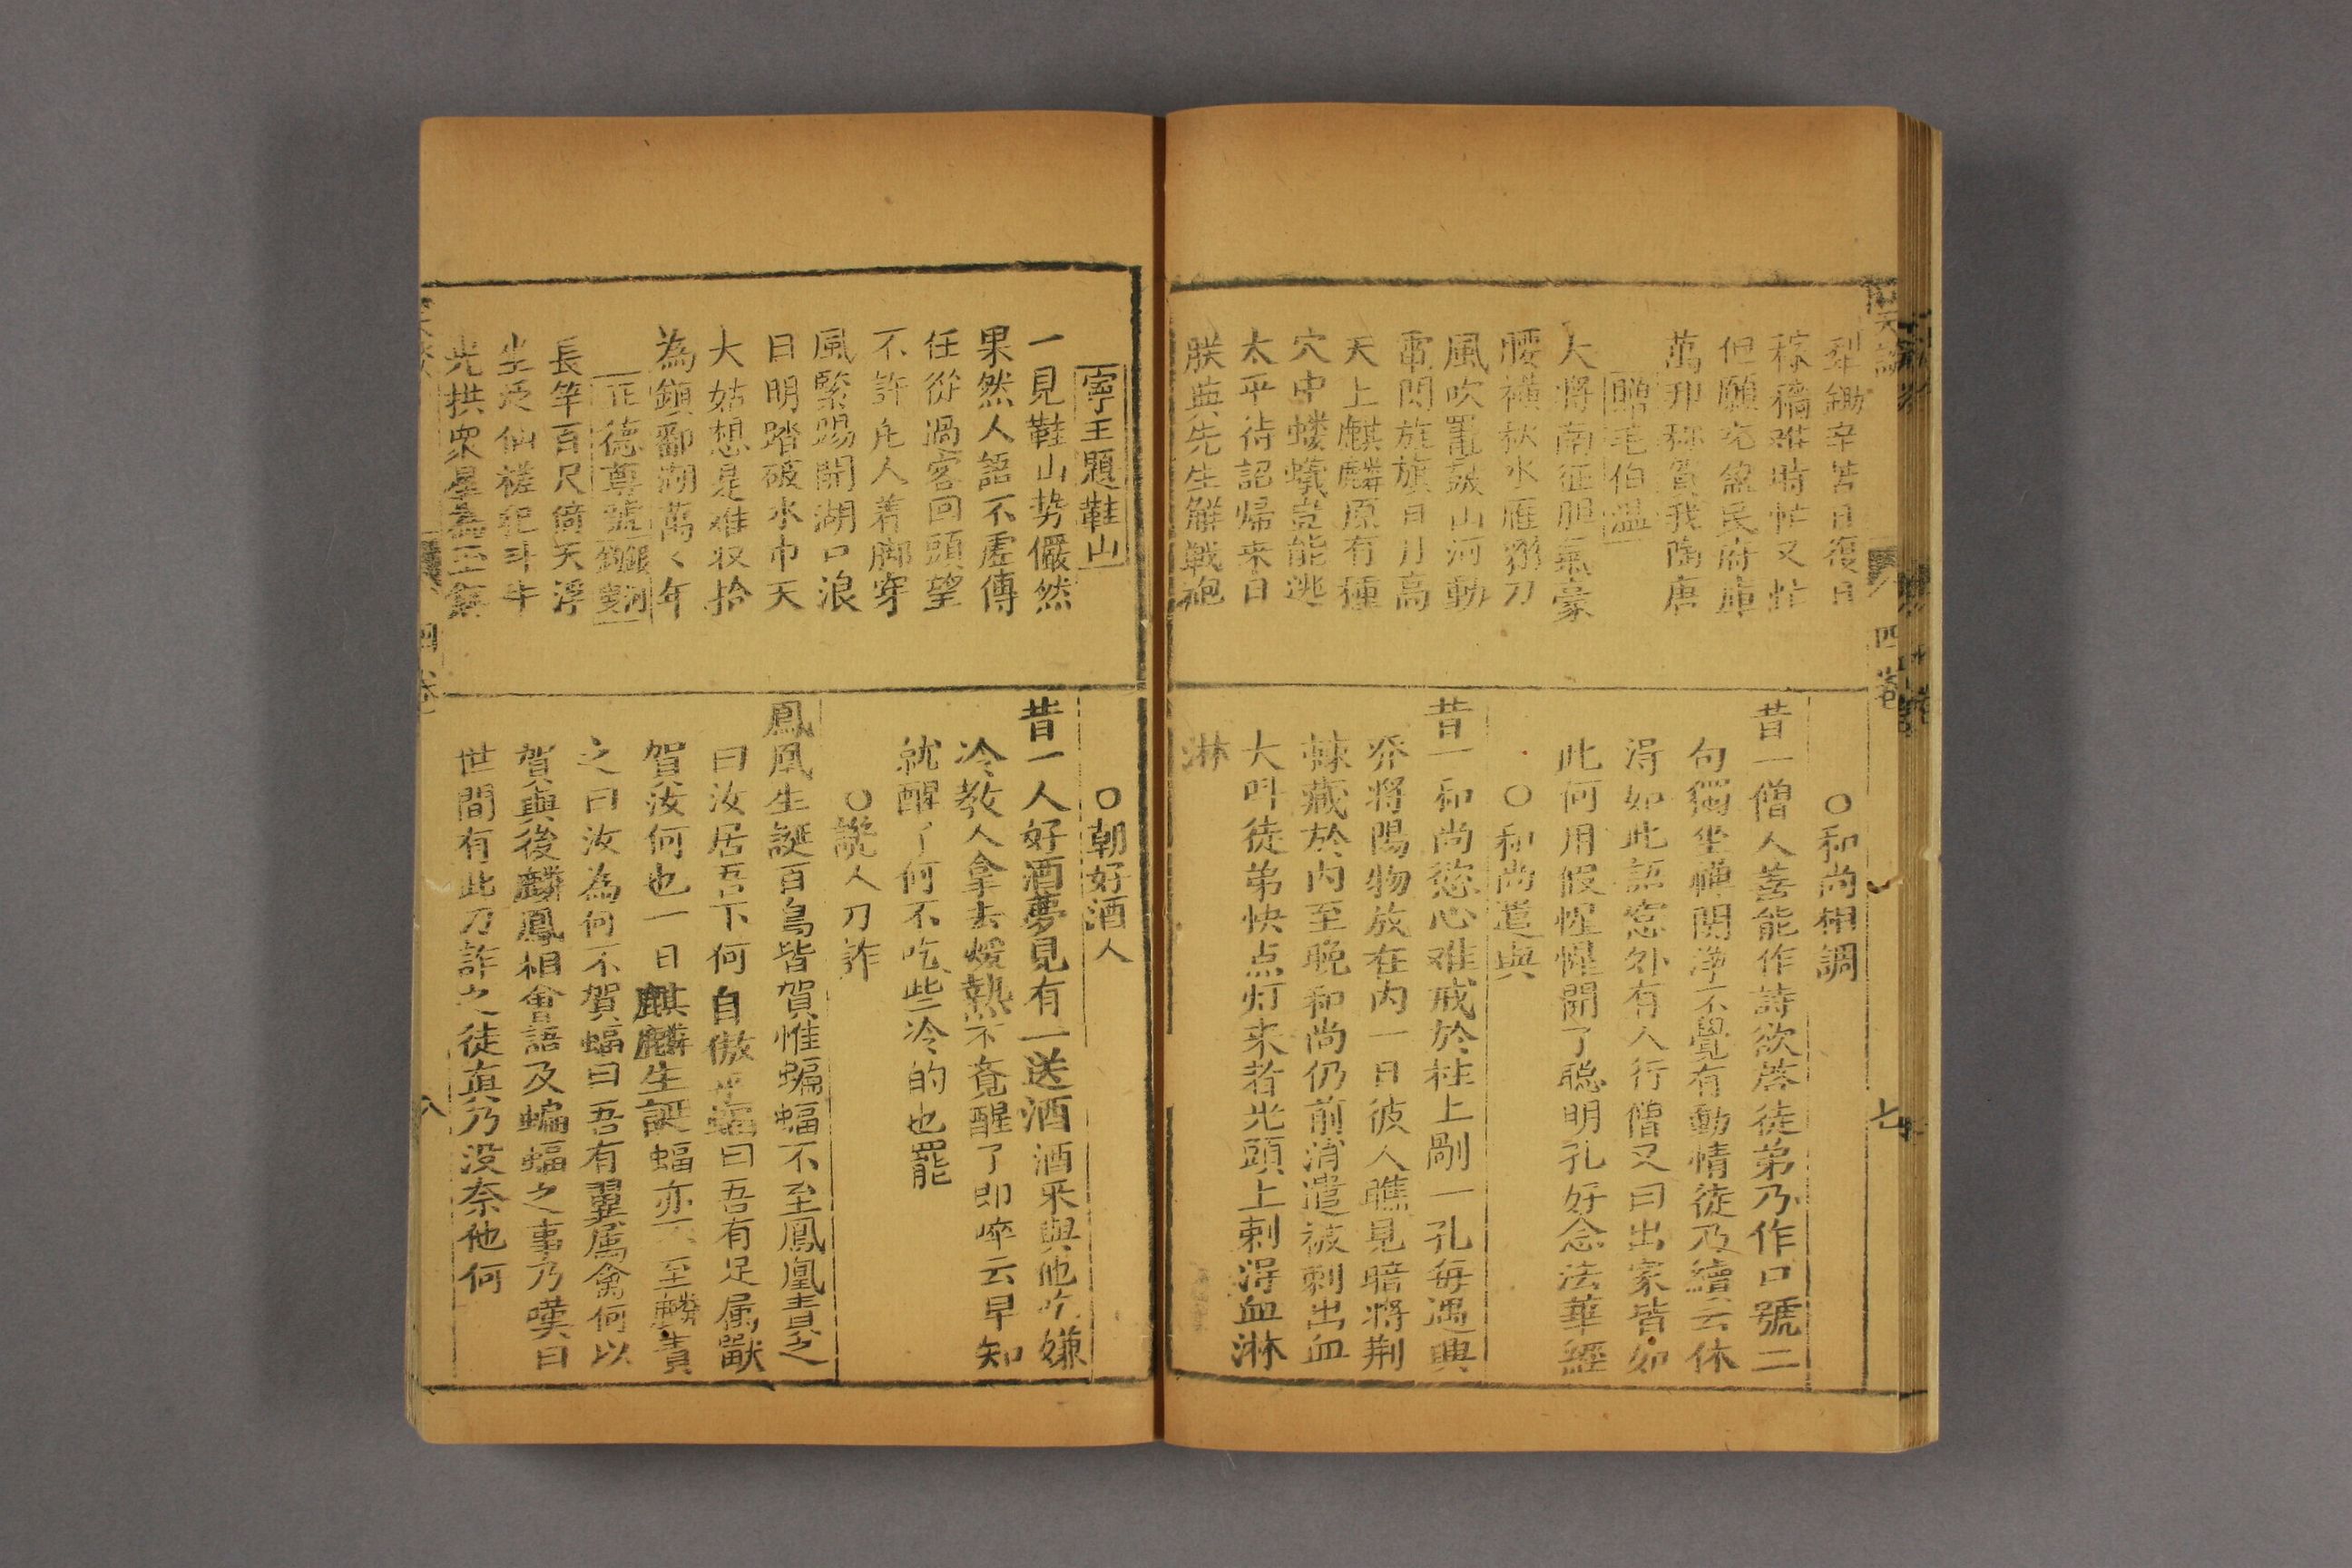 犁鋤辛苦日復日
稼穡艱時忙又忙
但願充盈民府庫
萬邦称賀我陶唐
贈毛伯温
大將南征胆氣豪
腰横秋水雁翎刀
風吹鼉鼓山河動
電閃旌旗日月高
天上麒麟原有種
穴中蝼蟻豈能逃
太平待詔歸来日
朕與先生解戰袍
四卷
七
○和尚相調
昔一僧人善能作詩欲啓徒弟乃作口號二
句獨坐禅関淨不覺有動情徒乃續云休
得如此語窓外有人行僧又曰出家皆如
此何用假惺惺開了聡明孔好念法華經
○和尚遣興
昔一和尚慾心难戒於柱上剮一孔每遇興
發將陽物放在内一日彼人瞧見暗將荆
棘藏於内至晚和尚仍前消遣被刺出血
大呌徒弟快点灯来看光頭上剌得血淋
淋
寧王題鞋山
一見鞋山势儼然
果然人語不虚傳
任從過客回頭望
不許凢人着脚穿
風緊踢開湖口浪
日明踏破水中天
大姑想是难収拾
為鎮鄱湖萬〻年
正德尊號
長竿百尺倚天浮
坐泛仙槎犯斗牛
光拱衆星
四卷
八
○朝好酒人
昔一人好酒夢見有一送酒酒来與他吃嫌
冷教人拿去煖熱不覺醒了即啐云早知
就醒了何不吃些冷的也罷
○說人刀詐
鳳凰生誕百鳥皆賀惟蝙蝠不至鳳凰責之
曰汝居吾下何自傲乎蝠曰吾有足属獸
賀汝何也一日麒麟生誕蝠亦不至麟責
之曰汝為何不賀蝠曰吾有翼属禽何以
賀與後麟鳳相會語及蝙蝠之事乃嘆曰
世間有此刀詐之徒真乃没奈他何